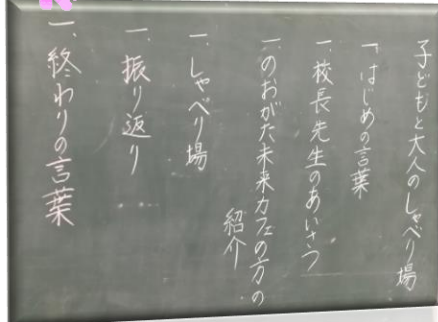 子どもと大人のしゃべり場
一、はじめの言葉
一、校長先生のあいさつ
一、のおがた未来カフェの方の
紹介
一、しゃべり場
一、振り返り
一、終わりの言葉